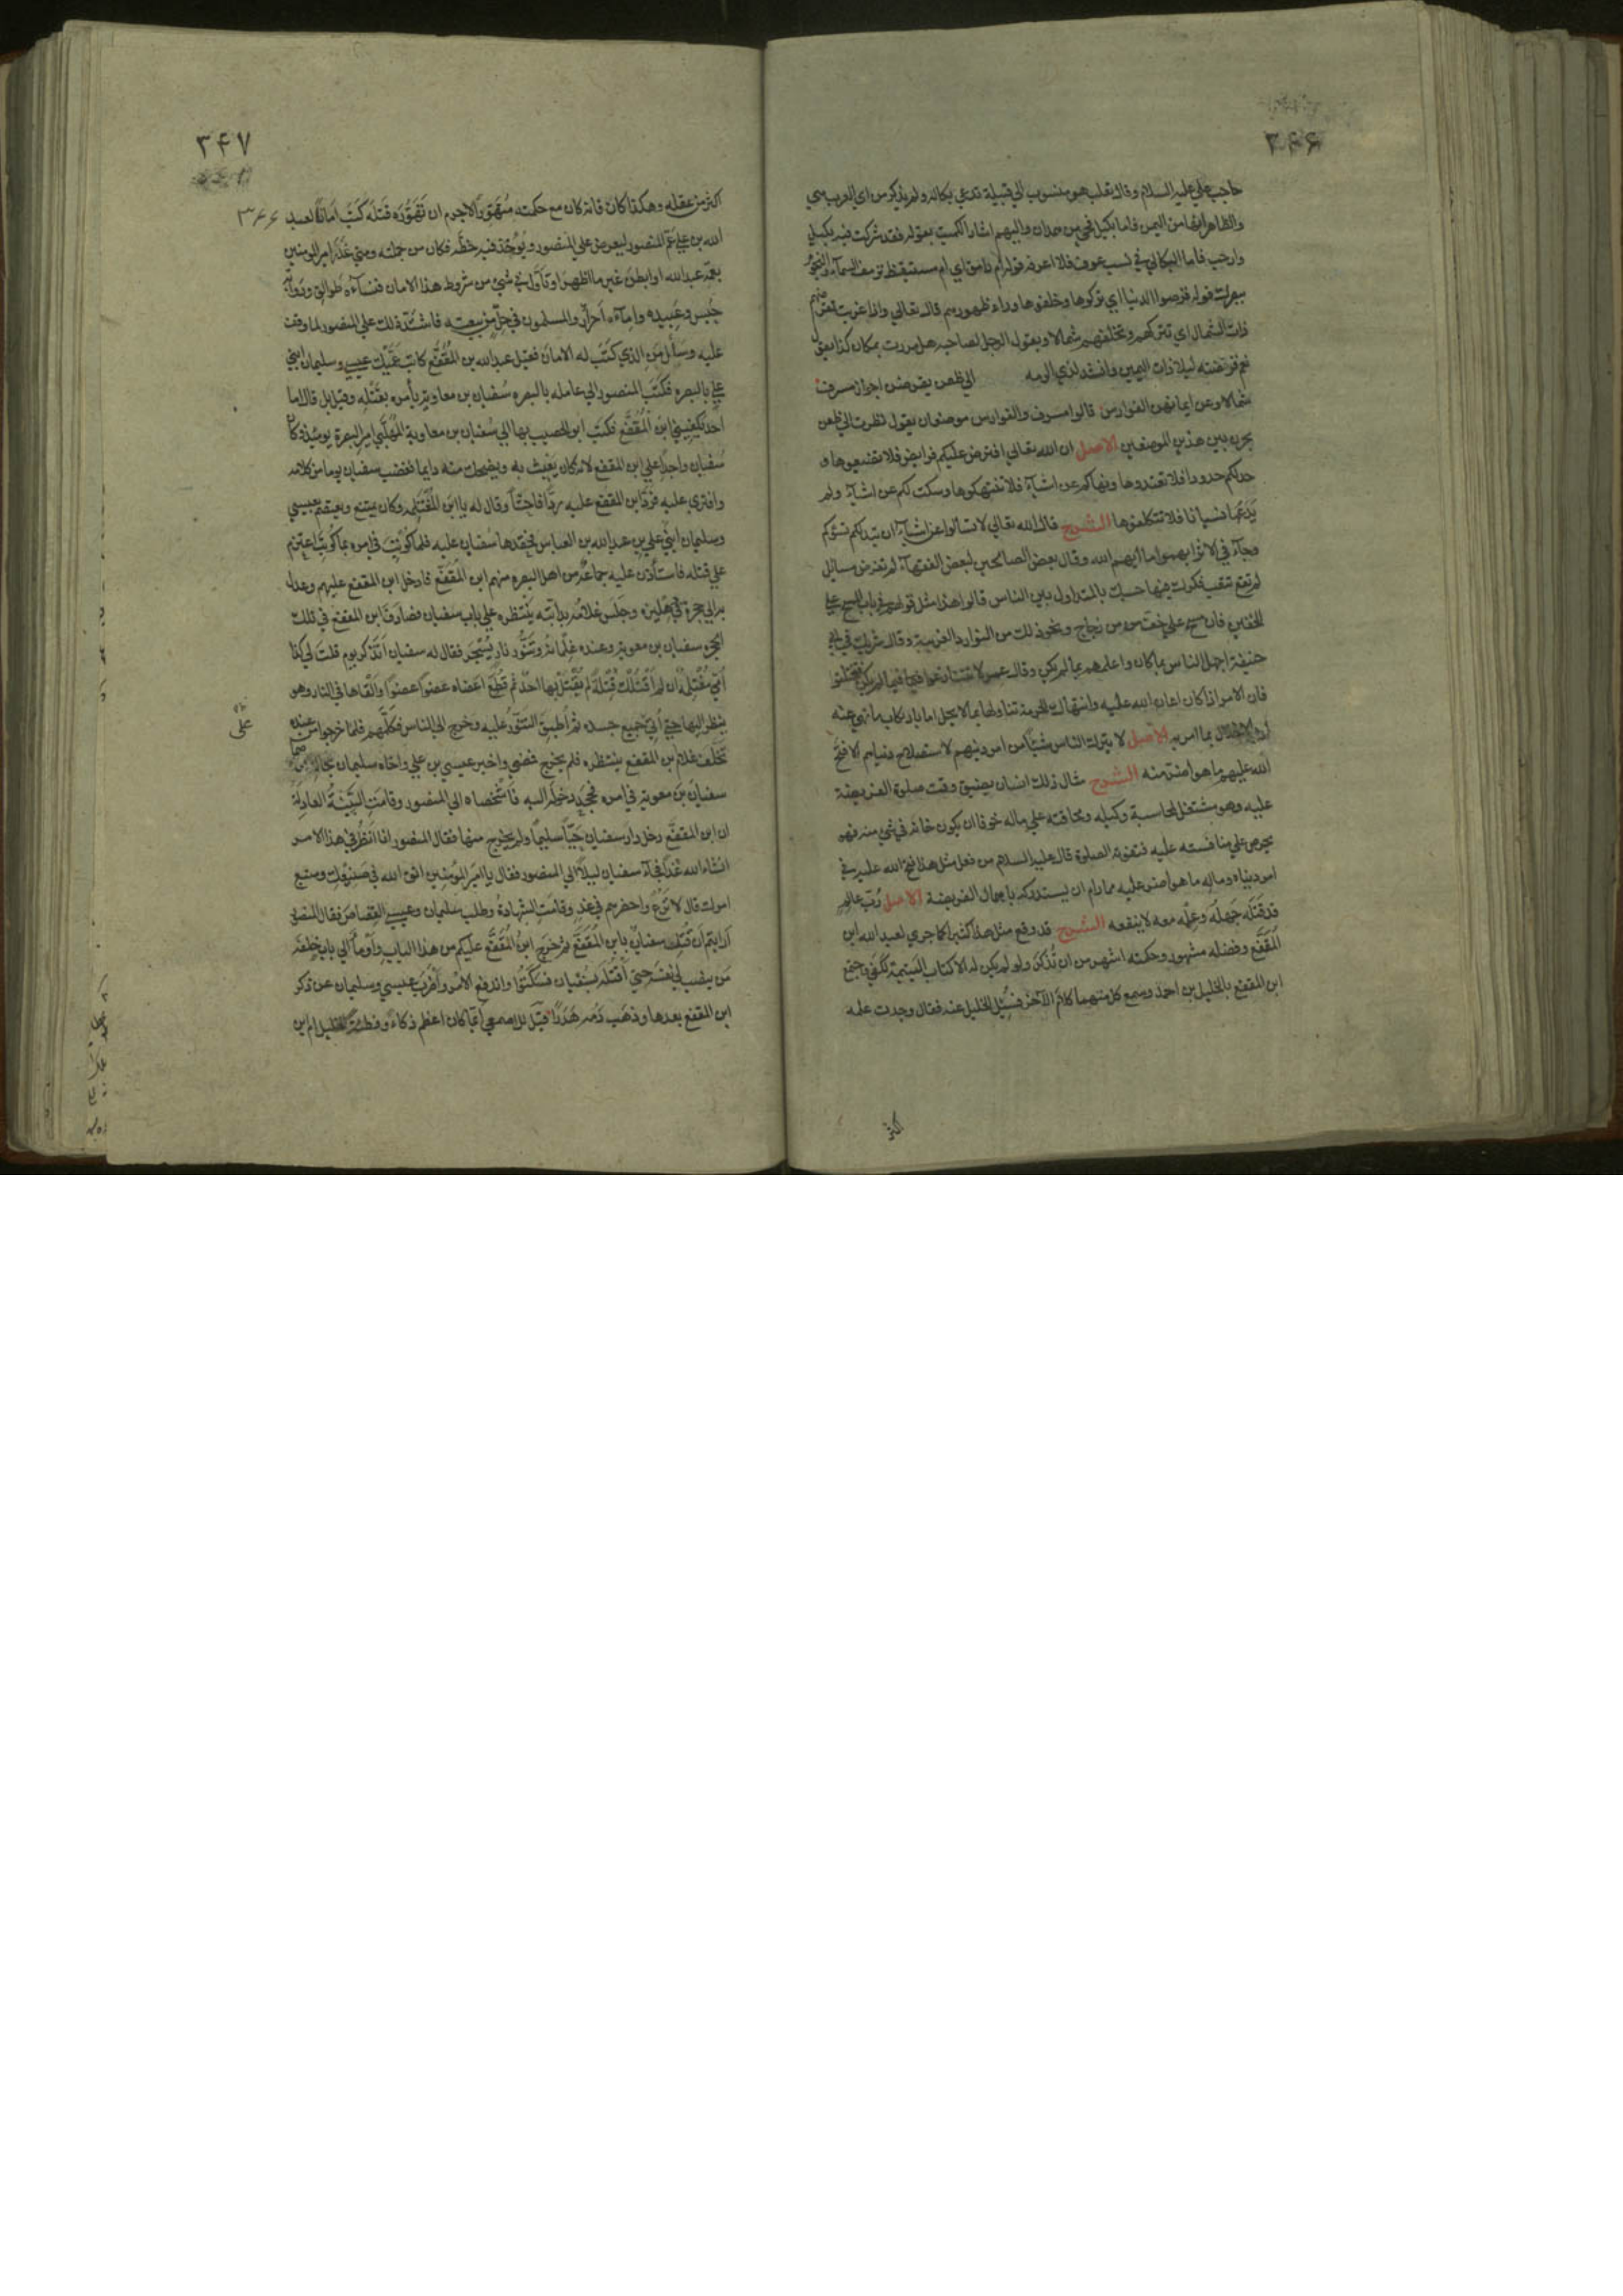 ۳۴۶
حاجب علي عليه السلام وقال ثعلب هو منسوب الي قبيلة تدعي بكالة ولم يذكر من اي العرب هي
والظاهر انها من اليمن فاما بكيل فحي من همدان واليهم اشار الكميت بقوله فقد شركت فيه بكيل
وارحب فاما البكالي في نسب عوف فلا اعرفه قوله ام رامق اي ام مستيقظ ترمق السماء والنجوم
ببصرك قوله قرضوا الدنيا اي تركوها وخلفوها وراء ظهورهم قال تعالي واذا غربت تقرضهم
ذات الشمال اي تتركهم وتخلفهم شمالا ويقول الرجل لصاحبه هل مررت بمكان كذا يقول
نعم قرضته ليلا ذات اليمين وانشد لذي الرمه الي ظعن يقرضن اجواز مشرف
شمالا وعن ايمانهن الفوارس قالوا مشرف والفوارس موضعان يقول نظرت الي ظعن
يجزن بين هذين الموضعين الاصل ان الله تعالي افترض عليكم فرايض فلا تضيعوها و
حد لكم حدودا فلا تعتدوها ونهاكم عن اشياء فلا تنتهكوها وسكت لكم عن اشياء ولم
يدعها نسيانا فلا تتكلفوها الشرح قال الله تعالي لا تسالوا عن اشياء ان تبد لكم تسؤكم
وجاء في الاثر ابهموا ما ابهم الله وقال بعض الصالحين لبعض الفقهاء لم تفرض مسايل
لم تقع تتعب فكرك فيها حسبك بالمتداول بين الناس قالوا هذا مثل قولهم في باب المسح علي
الخفين فان مسح علي خف من زجاج ونحو ذلك من النوادر الغريبة وقال شريك في ابي
حنيفة اجهل الناس بما كان واعلمهم بما لم يكن وقال عمر لا تتنازعوا فيما لم يكن فتختلفوا
فان الامر اذا كان اعان الله عليه وانتهاك الحرمة تناولها بما لا يحل اما بارتكاب ما نهي عنه
او الاخلال بما امر به الاصل لا يترك الناس شيئا من امر دينهم لاستصلاح دنياهم الا فتح
الله عليهم ما هو اضر منه الشرح مثال ذلك انسان يضيق وقت صلوة الفريضة
عليه وهو مشتغل بمحاسبة وكيله ومخافته علي ماله خوفا ان يكون خانه في شي منه فهو
يحرص علي مناقشته عليه فتفوته الصلوة قال عليه السلام من فعل مثل هذا فتح الله عليه في
امر دنياه وماله ما هو اضر عليه مما رام ان يستدركه باهمال الفريضة الاصل رب عالم
قد قتله جهله وعلمه معه لا ينفعه الشرح قد وقع مثل هذا كثيرا كما جري لعبد الله ابن
المقفع وفضله مشهور وحكمته اشهر من ان تذكر ولو لم يكن له الا كتاب اليتيمة لكفي واجتمع
ابن المقفع بالخليل بن احمد وسمع كل منهما كلام الآخر فسئل الخليل عنه فقال وجدت علمه
اكثر
۳۴۷
۳۶۶
اكثر من عقله وهكذا كان فانه كان مع حكمته متهورا لا جرم ان تهوره قتله كتب امانا لعبد
الله بن علي عم المنصور ليعرض علي المنصور ويؤخذ فيه خطه فكان من جملته ومتي غدر امير المومنين
بعمه عبد الله او ابطن غير ما اظهر او تأول في شي من شروط هذا الامان فنساءه طوالق ودوابه
حبس وعبيده واماءه احرار والمسلمون في حل من بيعته فاشتد ذلك علي المنصور لما وقف
عليه وسأل من الذي كتب له الامان فقيل عبد الله بن المقفع كاتب عميك عيسي وسليمان ابني
علي بالبصره فكتب المنصور الي عامله بالبصره سفيان بن معاوية يأمره بقتله وقيل بل قال اما
احد يكفيني ابن المقفع فكتب ابو الخصيب بها الي سفيان بن معاوية المهلبي امير البصرة يومئذ وكان
سفيان واجدا علي ابن المقفع لانه كان يعبث به ويضحك منه دايما فغضب سفيان يوما من كلامه
وافتري عليه فرد ابن المقفع عليه ردا فاحشا وقال له يا ابن المغتلمه وكان يمتنع ويعتصم بعيسي
وسليمان ابني علي بن عبد الله بن العباس فحقدها سفيان عليه فلما كوتب في امره بما كوتب اعتزم
علي قتله فاستأذن عليه جماعة من اهل البصره منهم ابن المقفع فادخل ابن المقفع عليهم وعدل
به الي حجرة في دهليزه وجلس غلامه بدابته ينتظره علي باب سفيان فصادف ابن المقفع في تلك
الحجره سفيان بن معوية وعنده غلمانه وتنور نار يسجر فقال له سفيان اتذكر يوم قلت لي كذا
امي مغتلمة ان لم اقتلك قتلة لم يقتل بها احد ثم قطع اعضاه عضوا عضوا والقاها في النار وهو
ينظر اليها حتي اتي جميع جسده ثم اطبق التنور عليه وخرج الي الناس فكلمهم فلما خرجوا من عنده
علي
تخلف غلام بن المقفع ينتظره فلم يخرج فمضي واخبر عيسي بن علي واخاه سليمان بحاله فخاصما
سفيان بن معوية في امره فجحد دخوله اليه فاشخصاه الي المنصور وقامت البينة العادلة
ان ابن المقفع دخل دار سفيان حيا سليما ولم يخرج منها فقال المنصور انا انظر في هذا الامر
انشاء الله غدا فجاء سفيان ليلا الي المنصور فقال يا امير المؤمنين اتق الله في صنيعتك ومتبع
امرك قال لا ترع واحضرهم في غد وقامت الشهادة وطلب سليمان وعيسي القصاص فقال المنصور
ارايتم ان قتلت سفيان بابن المقفع ثم خرج ابن المقفع عليكم من هذا الباب واومأ الي باب خلفه
من ينصب لي نفسه حتي اقتله بسفيان فسكتوا واندفع الامر واضرب عيسي وسليمان عن ذكر
ابن المقفع بعدها وذهب دمه هدرا قيل للاصمعي ايما كان اعظم ذكاء وفطنة الخليل ام ابن